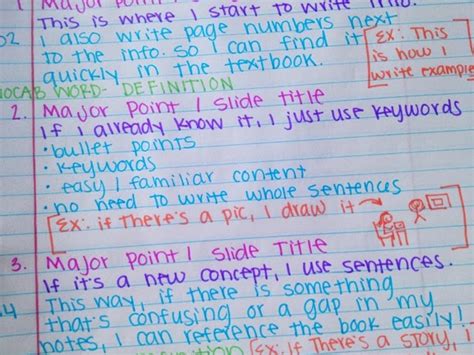 1 Major Point
This is where I start to write info.
02 I also write page numbers next
to the info. so I can find it
quickly in the textbook.
[Ex: This
is how I
write example
VOCAB WORD- DEFINITION
2. Major Point / Slide title
If I already know it, I just use keywords
• bullet points
• keywords
• easy / familiar content
• no need to write whole sentences
[Ex: if there's a pic, I draw it →
3. Major Point / Slide Title
If it's a new concept, I use sentences.
04 This way, if there is something
that's confusing or a gap in my
notes, I can reference the book easily!
[Ex: If There's a story,